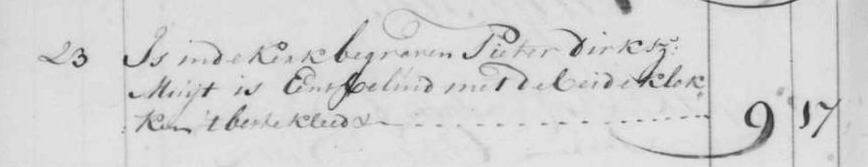 23 Is in de Kerk begraven Pieter Dirksz:
Muijt is Eens beluid met de beide klok
ken 't beste kleed &c 9 17